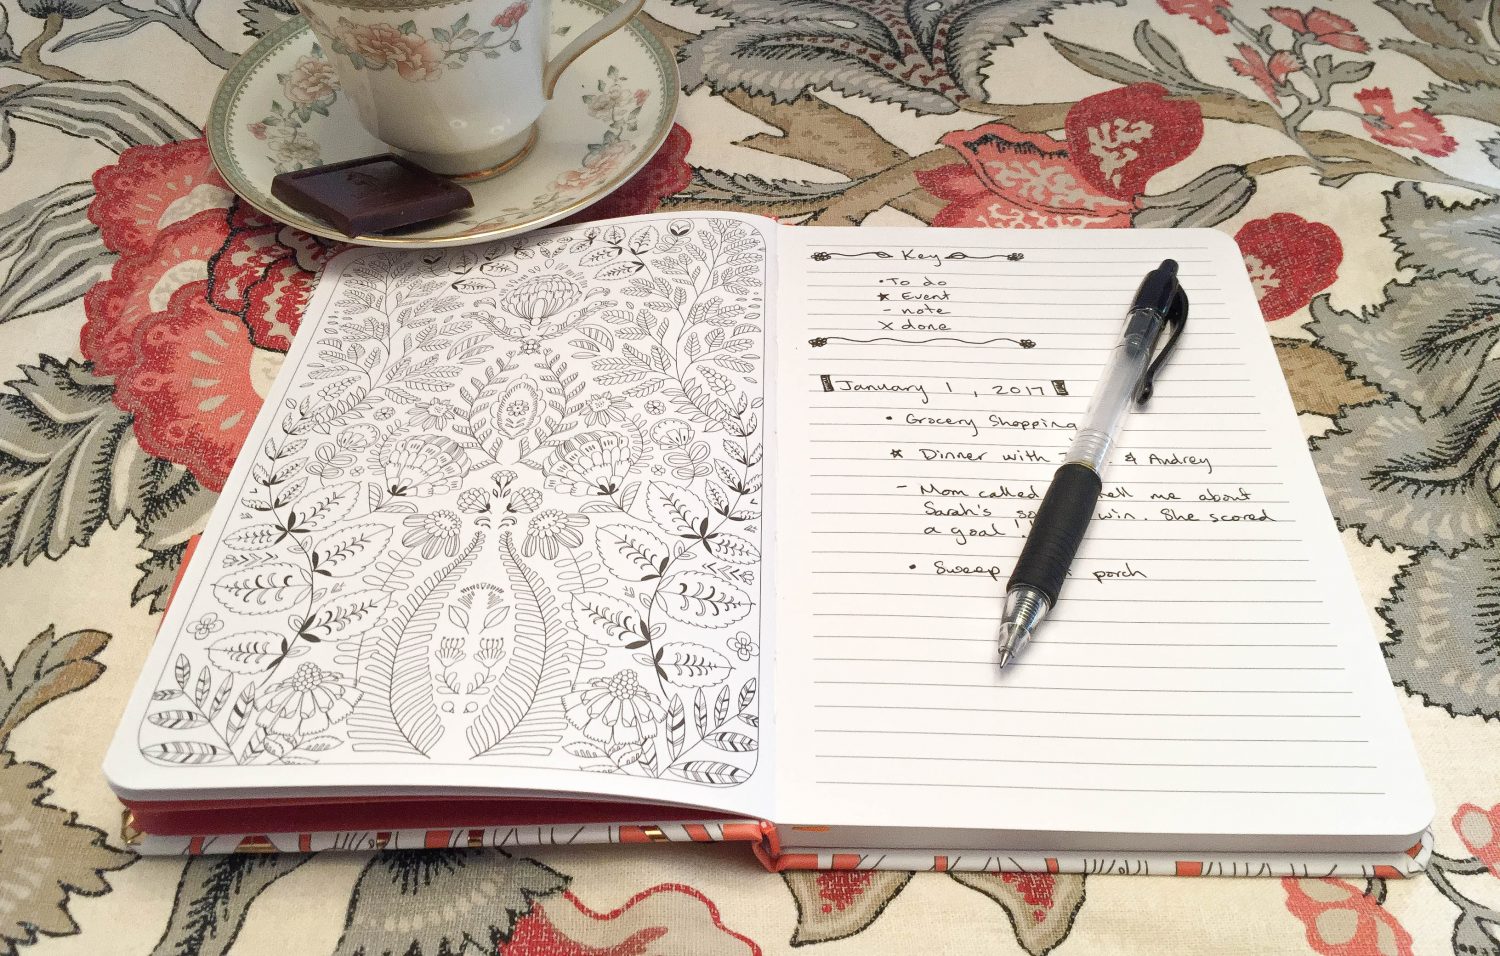 Key
• To do
★ Event
- note
X done
January 1, 2017
• Grocery Shopping
★ Dinner with & Audrey
- Mom called me about
Sarah's win. She scored
a goal!
• Sweep porch